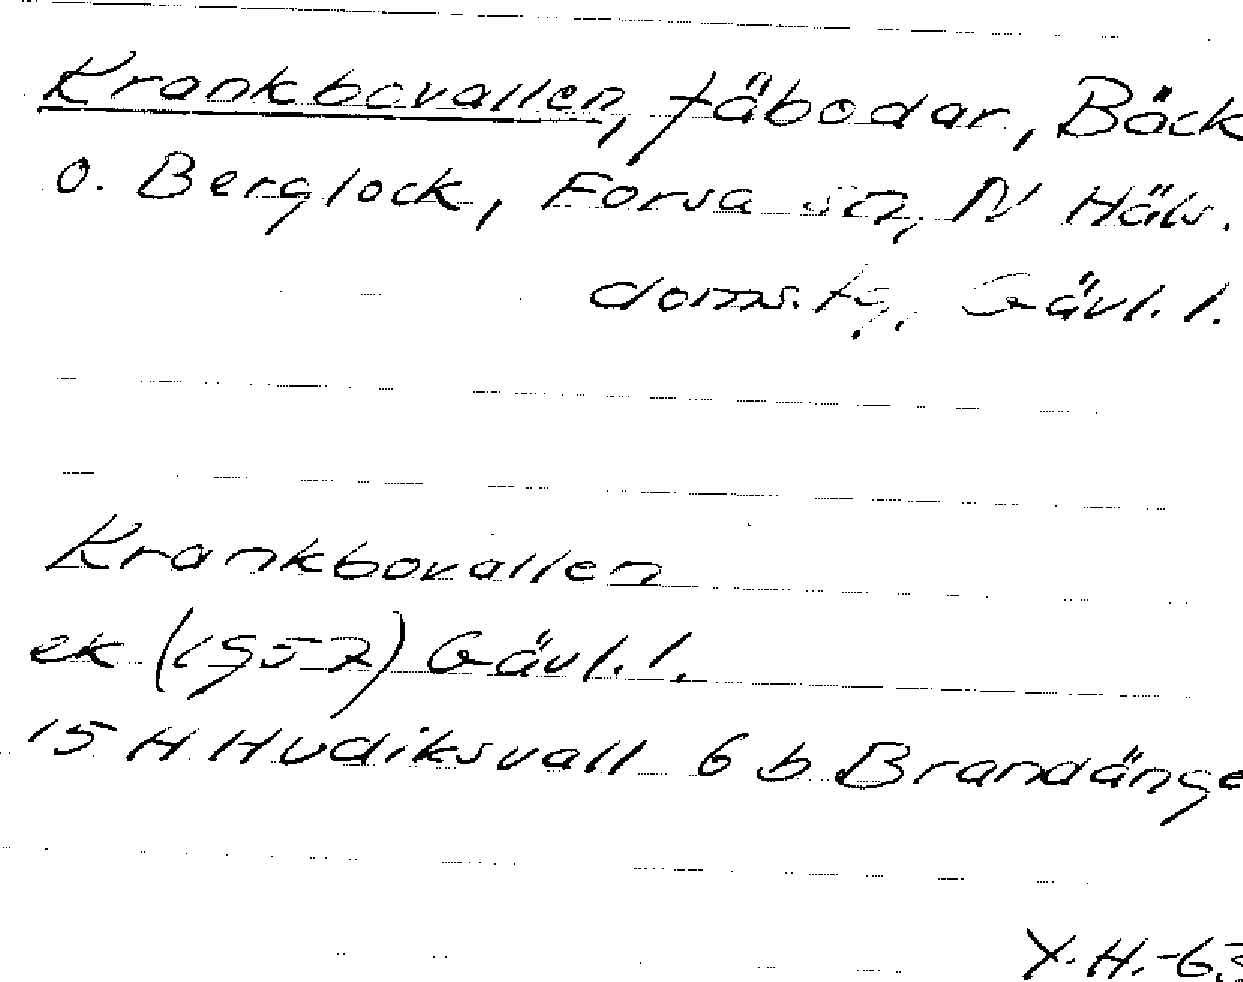 Krankbovallen, fäbodar, Bäck
o. Berglock, Forsa sn, N Häls.
doms.tg., Gävl. l.
Krankbovallen
ek (1952) Gävl. l.
15 H Hudiksvall 6 b Brandänge
Y.H.-63